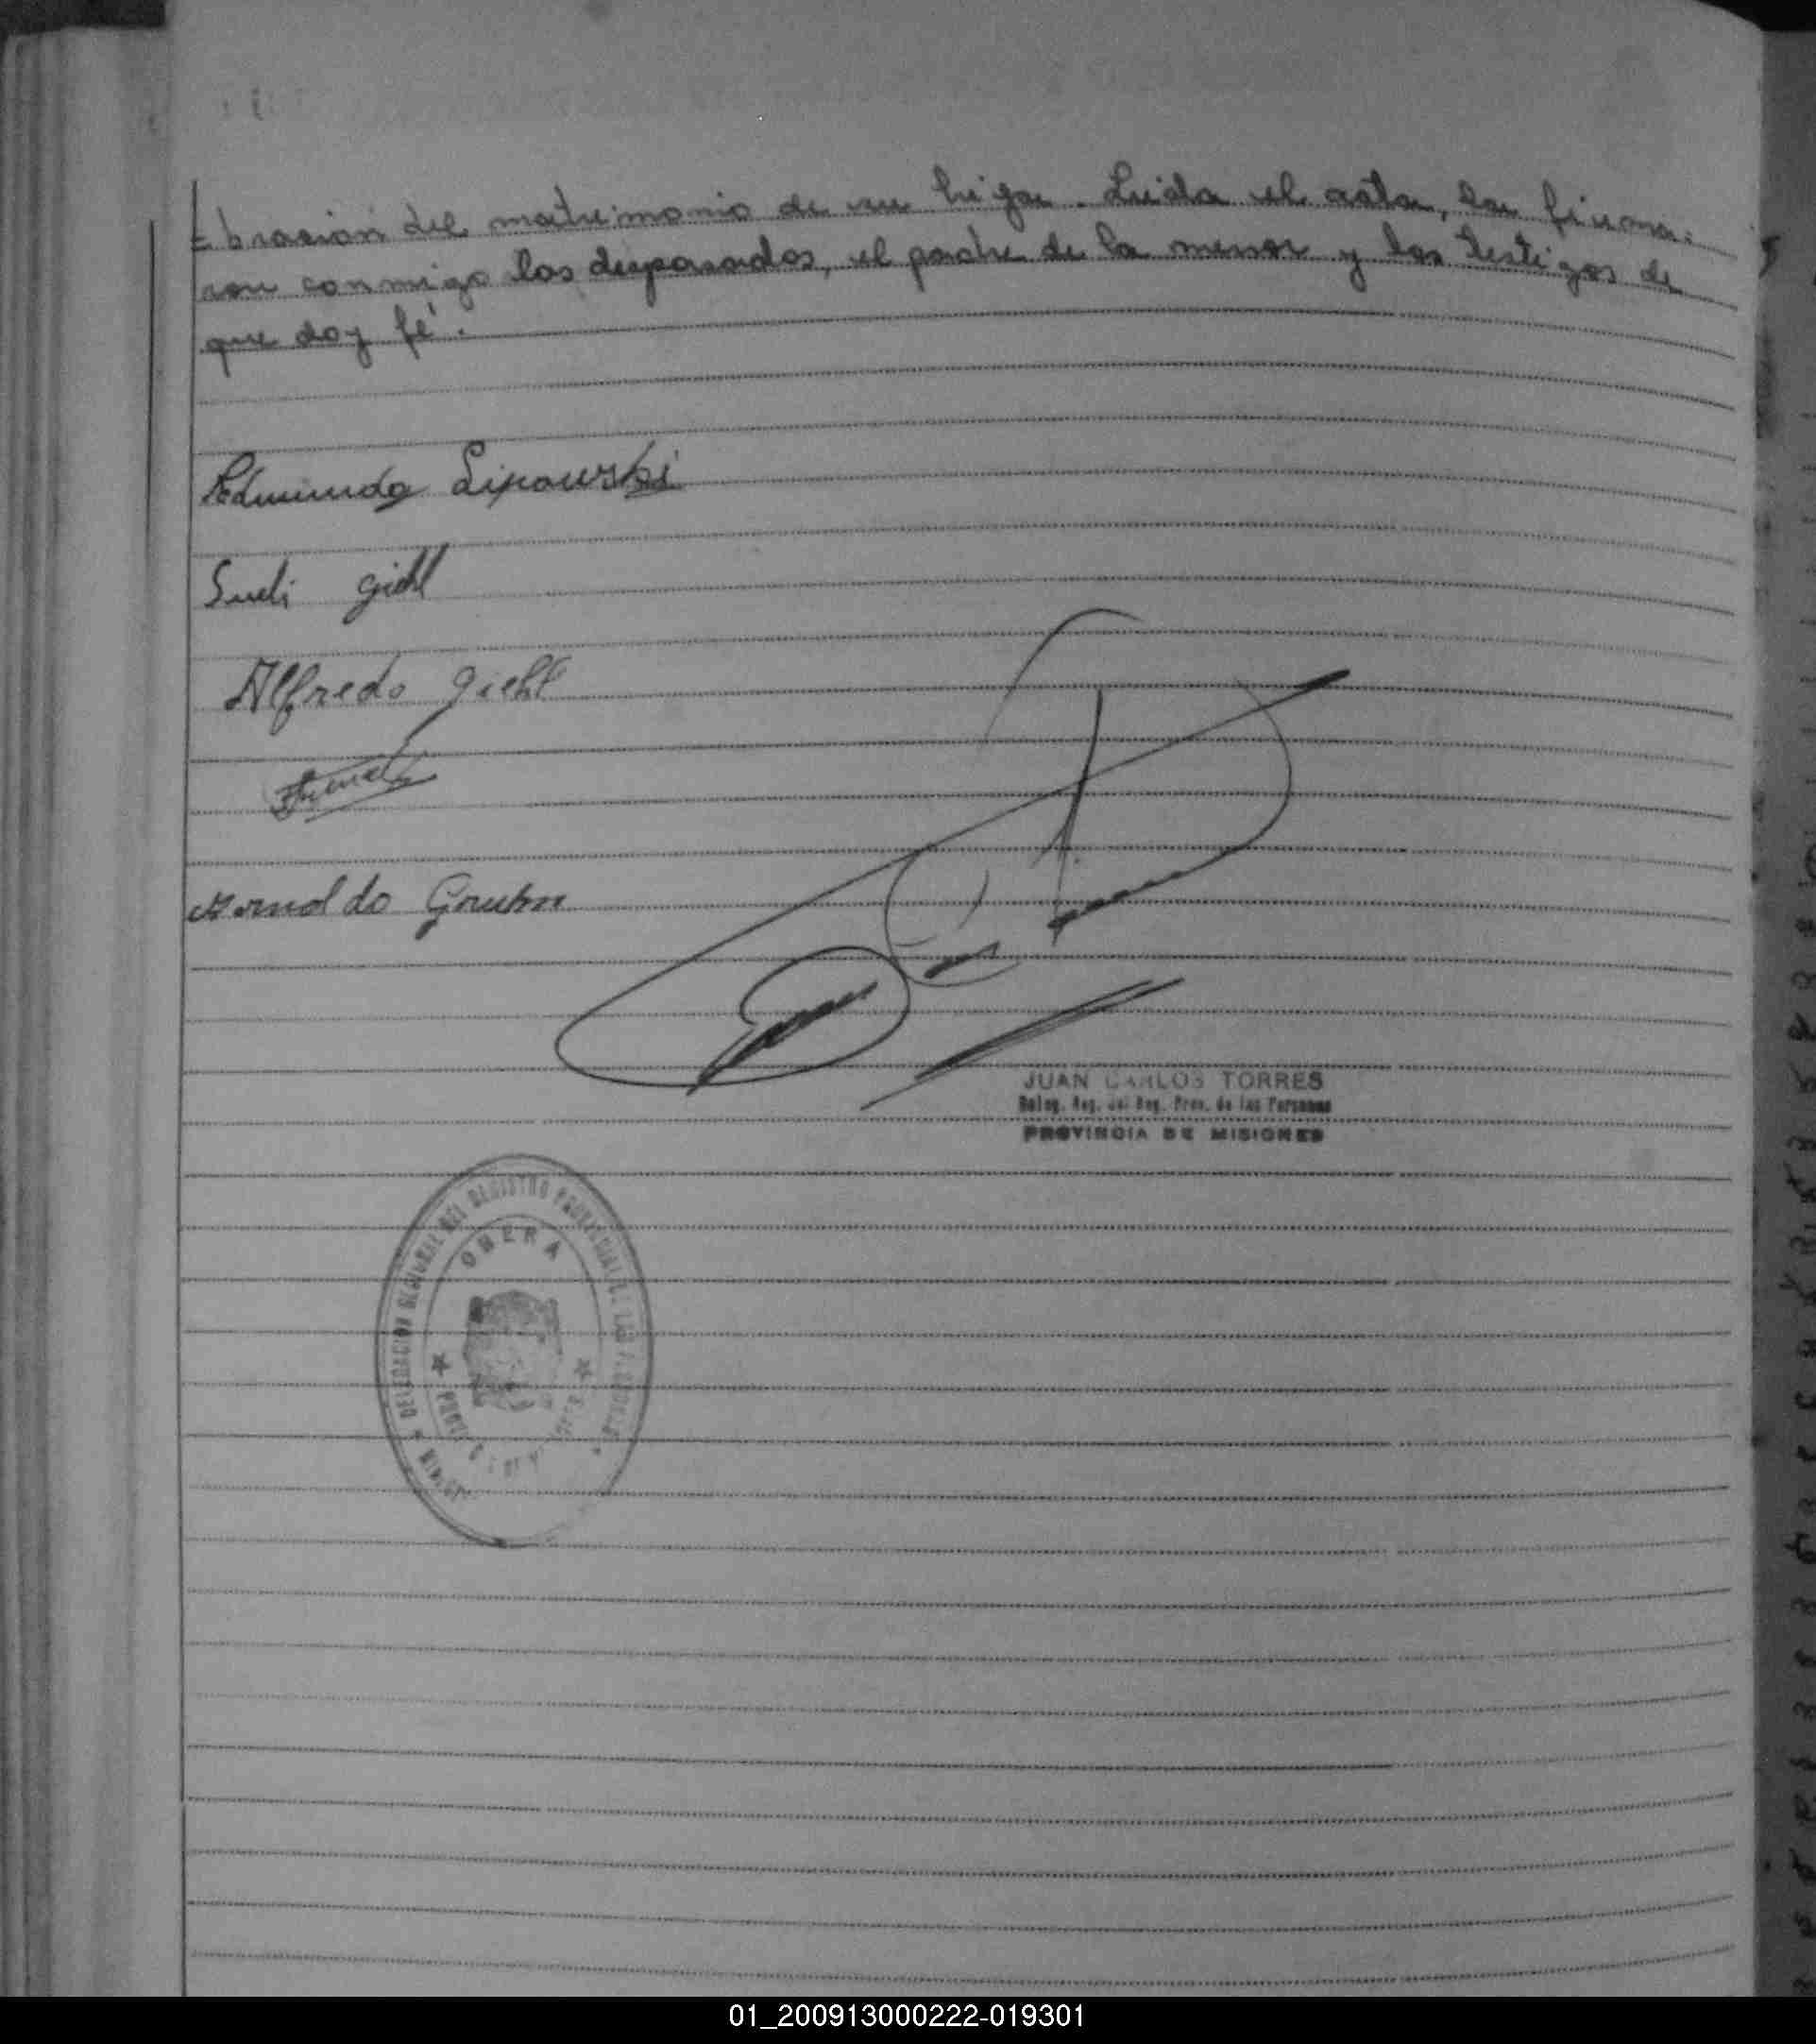 lebracion del matrimonio de su hija. Leida el acta, la firma:
ron conmigo los desposados, el padre de la menor y los testigos de
que doy fé.
Edmundo Lipowski
Sueli giehl
Alfredo giehl
Arnoldo Gruhn
JUAN CARLOS TORRES
Deleg. Reg. del Reg. Prov. de las Personas
PROVINCIA DE MISIONES
DELEGACION REGIONAL DEL REGISTRO PROVINCIAL DE LAS PERSONAS
OBERA
01_200913000222-019301